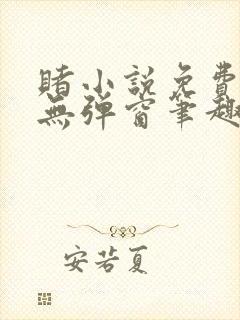 賭小説免費
無彈窗筆趣
安若夏